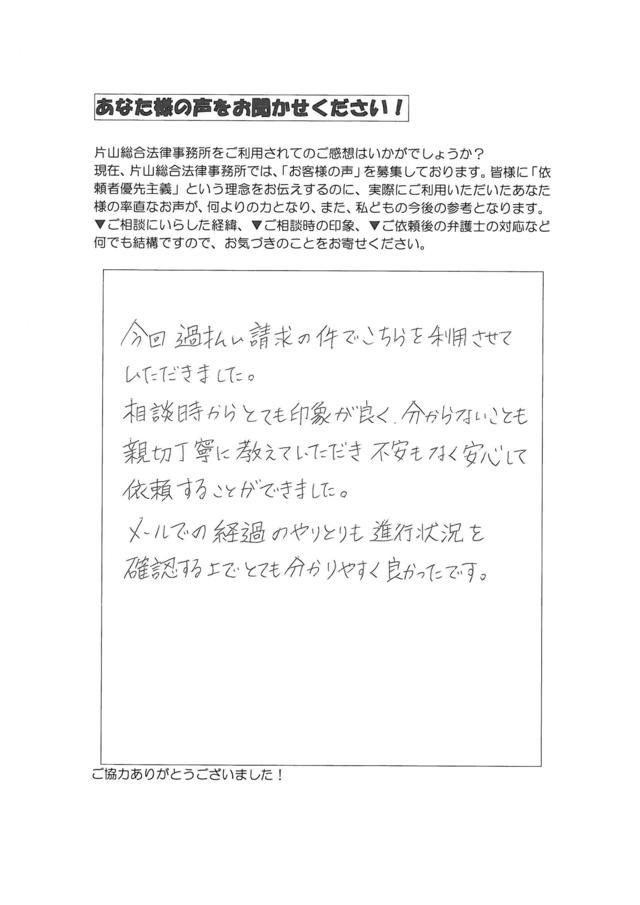 あなた様の声をお聞かせください！
片山総合法律事務所をご利用されてのご感想はいかがでしょうか？
現在、片山総合法律事務所では、「お客様の声」を募集しております。皆様に「依
頼者優先主義」という理念をお伝えするのに、実際にご利用いただいたあなた
様の率直なお声が、何よりの力となり、また、私どもの今後の参考となります。
▼ご相談にいらした経緯、▼ご相談時の印象、▼ご依頼後の弁護士の対応など
何でも結構ですので、お気づきのことをお寄せください。
今回 過払い請求の件でこちらを利用させて
いただきました。
相談時からとても印象が良く、分からないことも
親切丁寧に教えていただき 不安もなく安心して
依頼することができました。
メールでの経過のやりとりも進行状況を
確認する上でとても分かりやすく良かったです。
ご協力ありがとうございました！